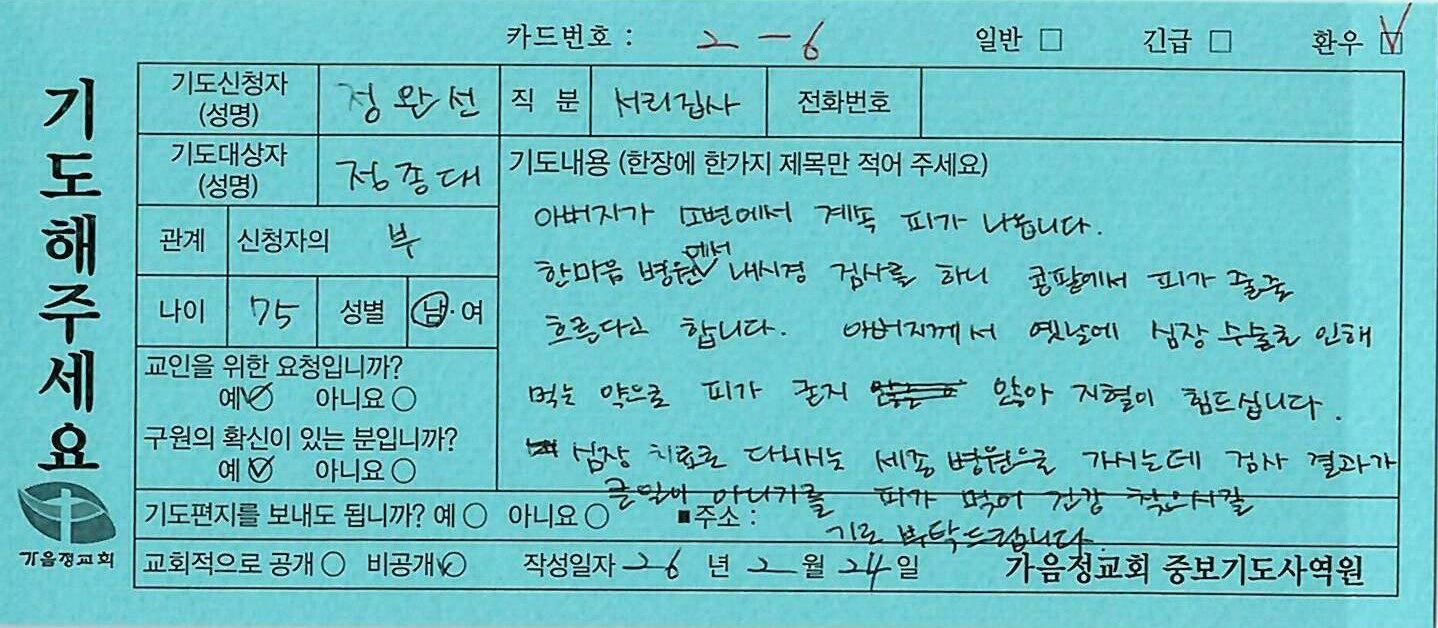 카드번호 : 2 - 6 일반 □ 긴급 □ 환우 ☑
기도해주세요
기도신청자 (성명) 정완선 직 분 서리집사 전화번호
기도대상자 (성명) 정종대
관계 신청자의 부
나이 75 성별 남·여
교인을 위한 요청입니까?
예 아니요
구원의 확신이 있는 분입니까?
예 아니요
기도내용 (한장에 한가지 제목만 적어 주세요)
아버지가 소변에서 계속 피가 나옵니다.
한마음 병원에서 내시경 검사를 하니 콩팥에서 피가 줄줄
흐른다고 합니다. 아버지께서 옛날에 심장 수술로 인해
먹는 약으로 피가 굳지 않아 지혈이 힘드십니다.
심장 치료로 다니시는 세종 병원으로 가시는데 검사 결과가
큰일이 아니기를 피가 멎어 건강 찾으시길
기도 부탁드립니다.
기도편지를 보내도 됩니까? 예 ○ 아니요 ○ ■주소 :
교회적으로 공개 ○ 비공개 작성일자 26 년 2 월 24 일 가음정교회 중보기도사역원
가음정교회